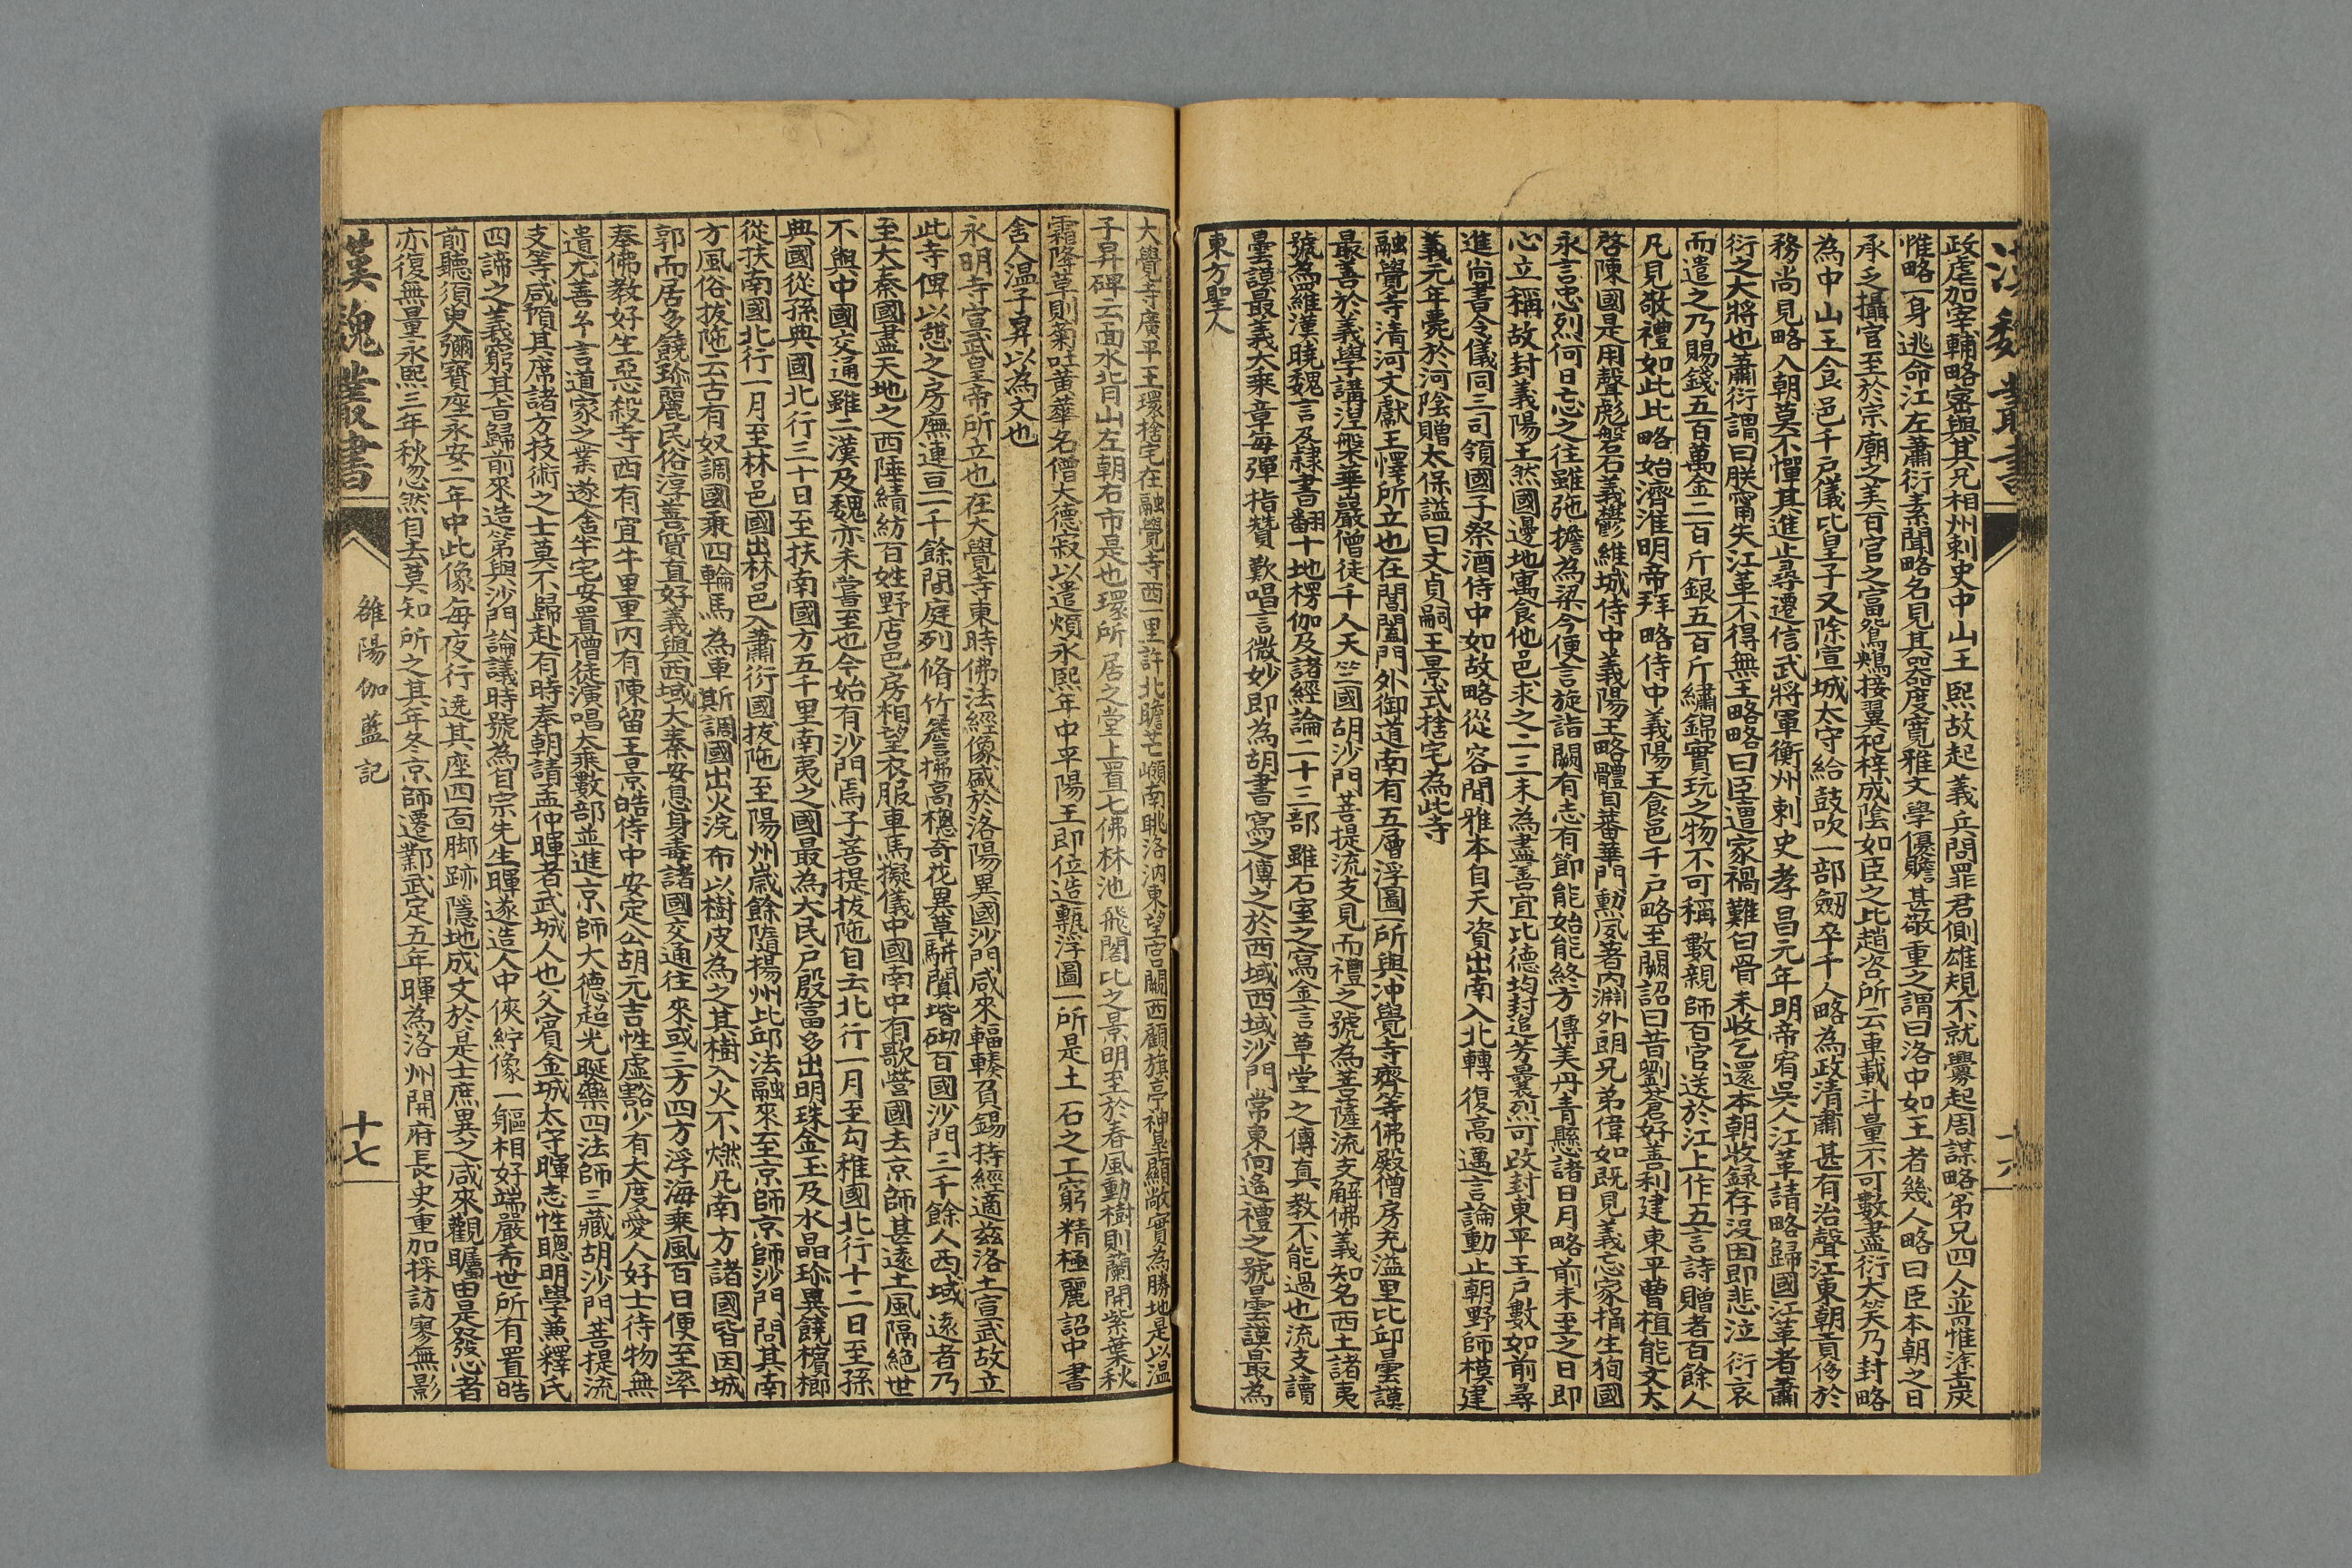 漢魏叢書
十六
政虐加宰輔略密與其兄相州刺史中山王熙故起義兵問罪君側雄規不就釁起周謀略弟兄四人並罹塗炭
惟略一身逃命江左蕭衍素聞略名見其器度寬雅文學優贍甚敬重之謂曰洛中如王者幾人略曰臣本朝之日
承乏攝官至於宗廟之美百官之富鴛鷞接翼杞梓成陰如臣之比趙咨所云車載斗量不可數盡衍大笑乃封略
為中山王食邑千戶儀比皇子又除宣城太守給鼓吹一部劒卒千人略為政清肅甚有治聲江東朝貢侈於
務尚見略入朝莫不憚其進止尋遷信武將軍衡州刺史孝昌元年明帝宥吳人江革請略歸國江革者蕭
衍之大將也蕭衍謂曰朕甯失江革不得無王略略曰臣遭家禍難白骨未收乞還本朝收録存沒因即悲泣衍哀
而遣之乃賜錢五百萬金二百斤銀五百斤繡錦寶玩之物不可稱數親師百官送於江上作五言詩贈者百餘人
凡見敬禮如此比略始濟淮明帝拜略侍中義陽王食邑千戶略至闕詔曰昔劉蒼好善利建東平曹植能文大
啓陳國是用聲彪盤石義鬱維城侍中義陽王略體自蕃華門勳夙著內淵外朗兄弟偉如既見義忘家捐生狥國
永言忠烈何日忘之往雖弛擔為梁今便言旋詣闕有志有節能始能終方傳美丹青懸諸日月略前未至之日即
心立稱故封義陽王然國邊地寓食他邑求之二三未為盡善宜比德均封追芳曩烈可改封東平王戶數如前尋
進尚書令儀同三司領國子祭酒侍中如故略從容閒雅本自天資出南入北轉復高邁言論動止朝野師模建
義元年薨於河陰贈太保謚曰文貞嗣王景式捨宅為此寺
融覺寺清河文獻王懌所立也在閶闔門外御道南有五層浮圖一所與沖覺寺齊等佛殿僧房充溢里比邱曇謨
最善於義學講湼槃華嚴僧徒千人天竺國胡沙門菩提流支見而禮之號為菩薩流支解佛義知名西土諸夷
號為羅漢曉魏言及隸書翻十地楞伽及諸經論二十三部雖石室之寫金言草堂之傳真教不能過也流支讀
曇謨最義大乘章每彈指贊歎唱言微妙即為胡書寫之傳之於西域西域沙門常東向遙禮之號曇謨最為
東方聖人
大覺寺廣平王環捨宅在融覺寺西一里許北瞻芒嶺南眺洛汭東望宮闕西顧旗亭神臯顯敞實為勝地是以温
子昇碑云面水背山左朝右市是也環所居之堂上置七佛林池飛閣比之景明至於春風動樹則蘭開紫葉秋
霜降草則菊吐黃華名僧大德寂以遣煩永熙年中平陽王即位造甎浮圖一所是土石之工窮精極麗詔中書
舍人温子昇以為文也
永明寺宣武皇帝所立也在大覺寺東時佛法經像盛於洛陽異國沙門咸來輻輳負錫持經適茲洛土宣武故立
此寺俾以憩之房廡連亘一千餘間庭列脩竹簷拂高樾奇花異草駢闐堦砌百國沙門三千餘人西域遠者乃
至大秦國盡天地之西陲績紡百姓野店邑房相望衣服車馬擬儀中國南中有歌營國去京師甚遠土風隔絕世
不與中國交通雖二漢及魏亦未嘗至也今始有沙門焉子菩提拔陁自云北行一月至勾稚國北行十二日至孫
典國從孫典國北行三十日至扶南國方五千里南夷之國最為大民戶殷富多出明珠金玉及水晶珍異饒檳榔
從扶南國北行一月至林邑國出林邑入蕭衍國拔陁至陽州歲餘隨楊州比邱法融來至京師京師沙門問其南
方風俗拔陁云古有奴調國乘四輪馬為車斯調國出火浣布以樹皮為之其樹入火不燃凡南方諸國皆因城
郭而居多饒珍麗民俗淳善質直好義與西域大秦安息身毒諸國交通往來或三方四方浮海乘風百日便至率
奉佛教好生惡殺寺西有宜牛里里內有陳留王景皓侍中安定公胡元吉性虛豁少有大度愛人好士待物無
遺尤善玄言道家之業遂舍半宅安置僧徒演唱大乘數部並進京師大德超光䁢藥四法師三藏胡沙門菩提流
支等咸預其席諸方技術之士莫不歸赴有時奉朝請孟仲暉者武城人也父賓金城太守暉志性聰明學兼釋氏
四諦之義窮其旨歸前來造第與沙門論議時號為目宗先生暉遂造人中俠紵像一軀相好端嚴希世所有置皓
前聽須臾彌寶座永安二年中此像每夜行遶其座四面脚跡隱地成文於是士庶異之咸來觀矚由是發心者
亦復無量永熙三年秋忽然自去莫知所之其年冬京師遷鄴武定五年暉為洛州開府長史重加採訪寥無影
漢魏叢書
雒陽伽藍記
十七